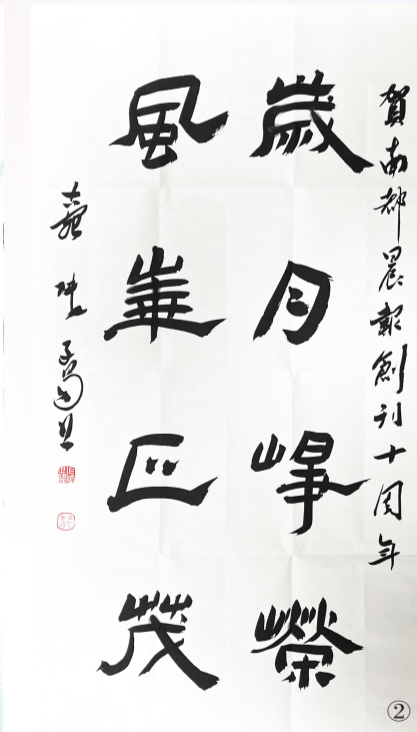 賀南都晨報創刊十周年
歲月崢嶸
風華正茂
②